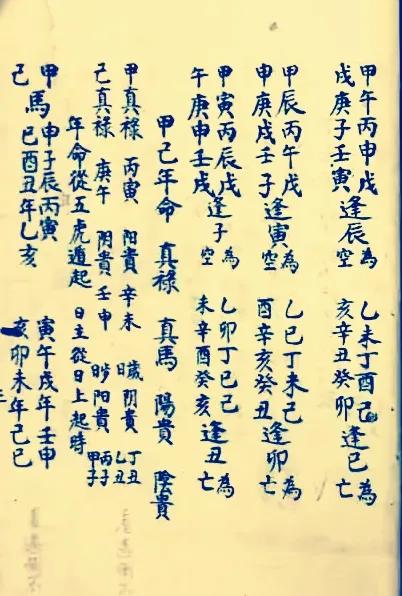 甲午丙申戊 為 乙未丁酉己 為
戌庚子壬寅 逢辰空 亥辛丑癸卯 逢巳亡
甲辰丙午戊 為 乙巳丁未己 為
申庚戌壬子 逢寅空 酉辛亥癸丑 逢卯亡
甲寅丙辰戊 為 乙卯丁巳己 為
午庚申壬戌 逢子空 未辛酉癸亥 逢丑亡
甲己年命 真祿 真馬 陽貴 陰貴
甲真祿 丙寅 阳貴 辛未 歲日 阴貴 丁丑 乙丑
己真祿 庚午 阴貴 壬申 阳貴 丙子 甲子
年命從五虎遁起 日主從日上起時
甲 馬 申子辰丙寅 寅午戌年壬申
己 巳酉丑年乙亥 亥卯未年己巳